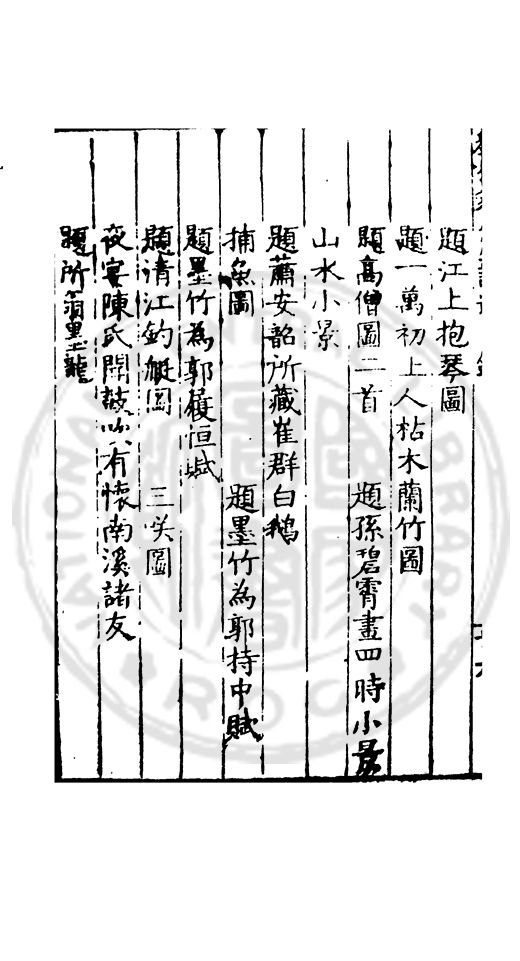 題江上抱琴圖
題一萬初上人枯木蘭竹圖
題高僧圖二首 題孫碧霄畫四時小景
山水小景
題蕭安韶所藏崔群白鵝
捕魚圖 題墨竹為郭持中賦
題墨竹為郭履恒賦
題清江釣艇圖 三笑圖
夜宴陳氏聞鼓吹有懷南溪諸友
題所翁墨龍